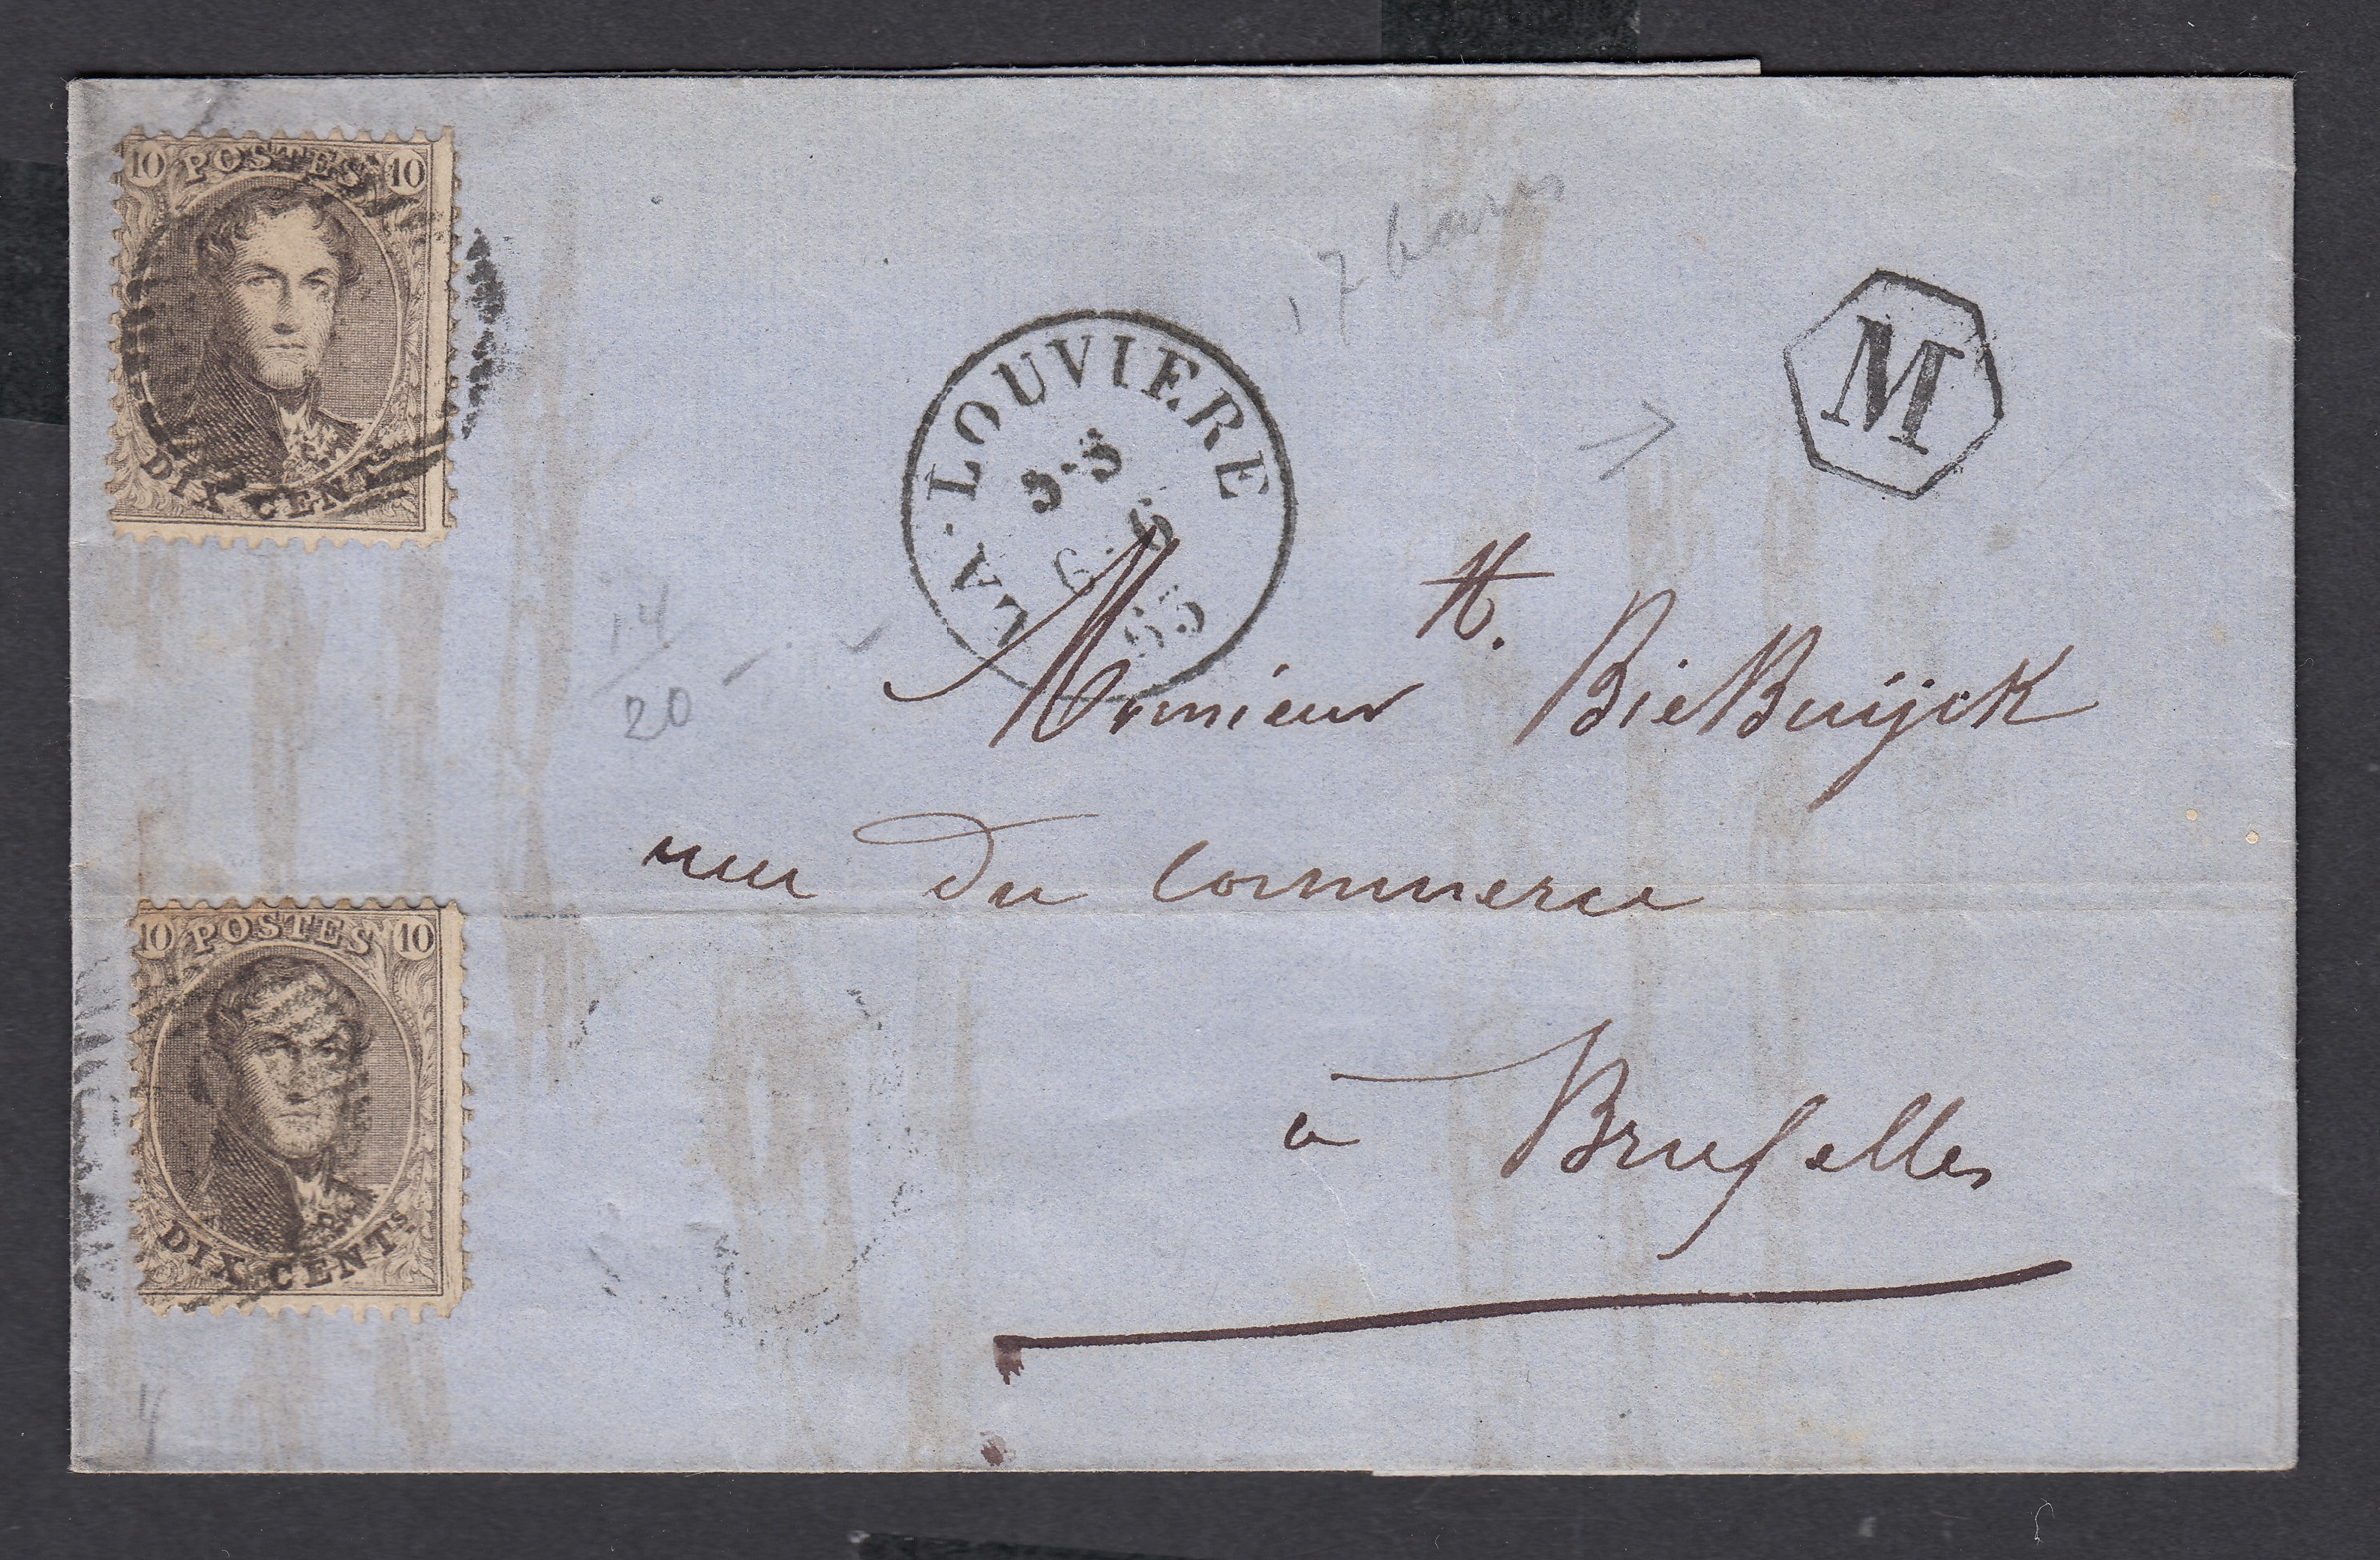 10 POSTES 10
DIX CENTS.
LA-LOUVIERE
6-6
65
M
17 barres
14
20
H.
Monsieur BieBuÿck
rue du Commerce
à Bruxelles
10 POSTES 10
DIX CENTS.